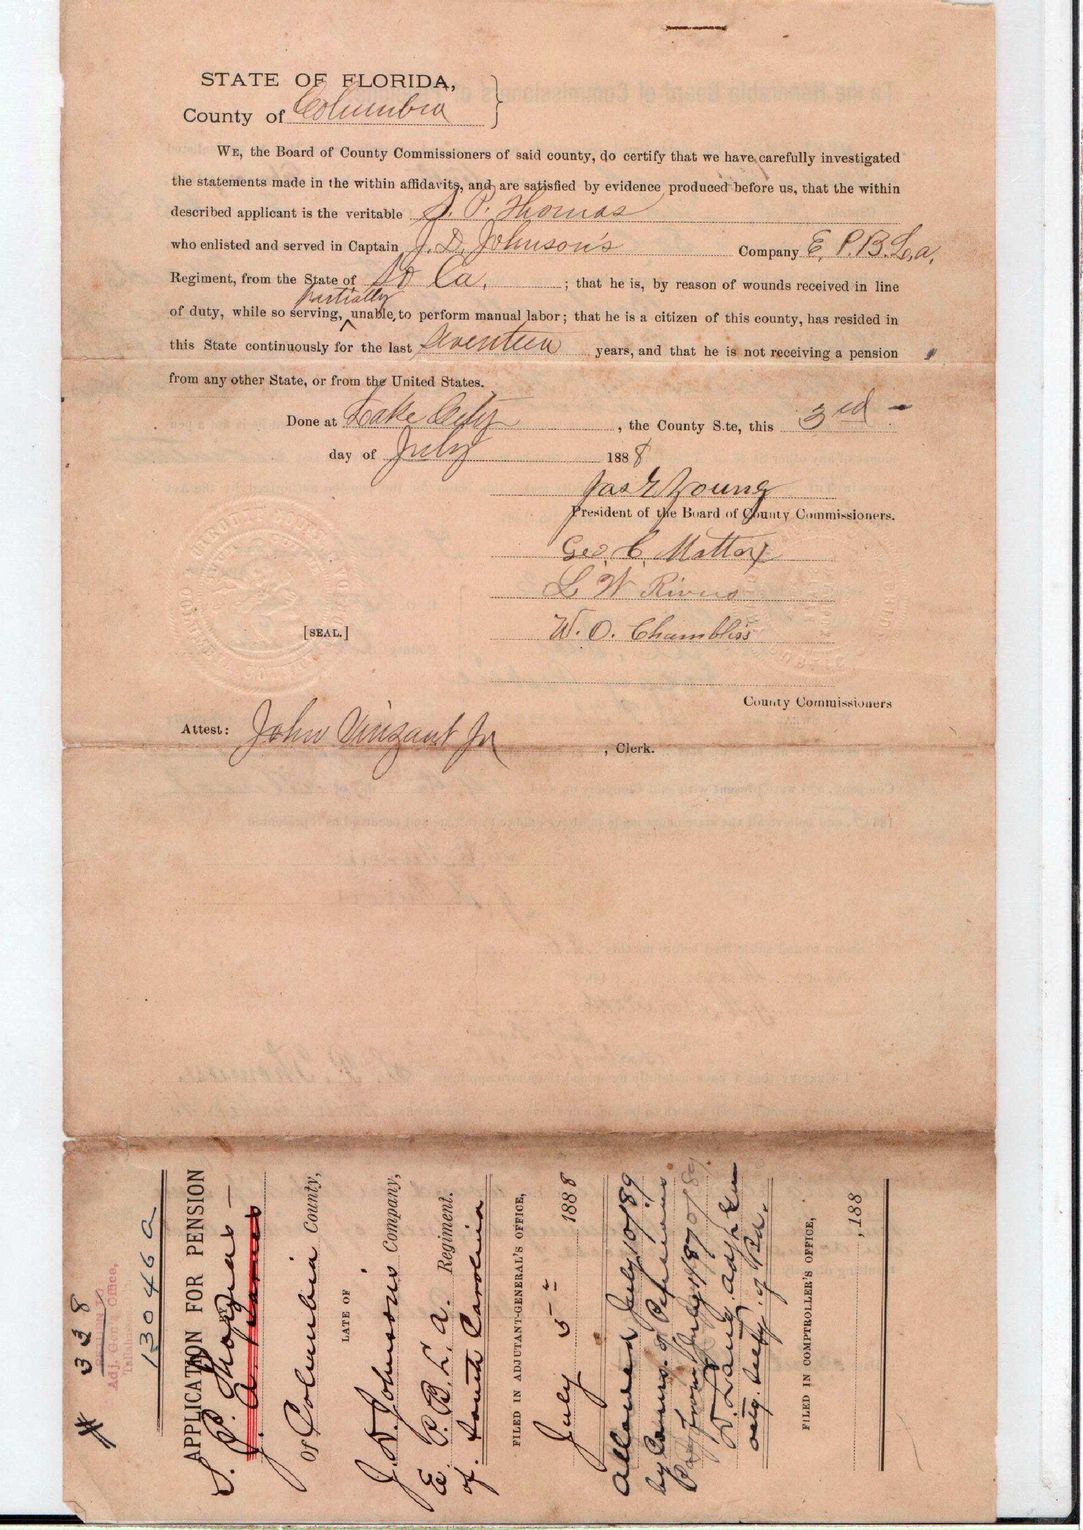 STATE OF FLORIDA, }
County of Columbia
WE, the Board of County Commissioners of said county, do certify that we have carefully investigated
the statements made in the within affidavits, and are satisfied by evidence produced before us, that the within
described applicant is the veritable S. P. Thomas
who enlisted and served in Captain J. D. Johnson's Company E, P.B.L.a,
Regiment, from the State of So Ca, ; that he is, by reason of wounds received in line
partially
of duty, while so serving, ^ unable, to perform manual labor; that he is a citizen of this county, has resided in
this State continuously for the last seventeen years, and that he is not receiving a pension
from any other State, or from the United States.
Done at Lake City , the County S.te, this 3rd
day of July 1888
Jas E Young
President of the Board of County Commissioners.
Geo. C. Mattox
L W Rivers
W. O. Chambliss
[SEAL.]
County Commissioners
Attest: John Vinzant Jr , Clerk.
# 338
Adj. Gen'l Office,
13046 a
APPLICATION FOR PENSION
S. P. Thomas —
OF
J. a.
Of Columbia County,
LATE OF
J. D. Johnson's Company,
E. P. B. L. a. Regiment.
of South Carolina
FILED IN ADJUTANT-GENERAL'S OFFICE,
July 5 1888
Allowed July 10/89
by Board of Pensions
Pay from July 10/89.
D. Lang Adjt Gen
acty. Secty. of Bd.
FILED IN COMPTROLLER'S OFFICE,
, 188